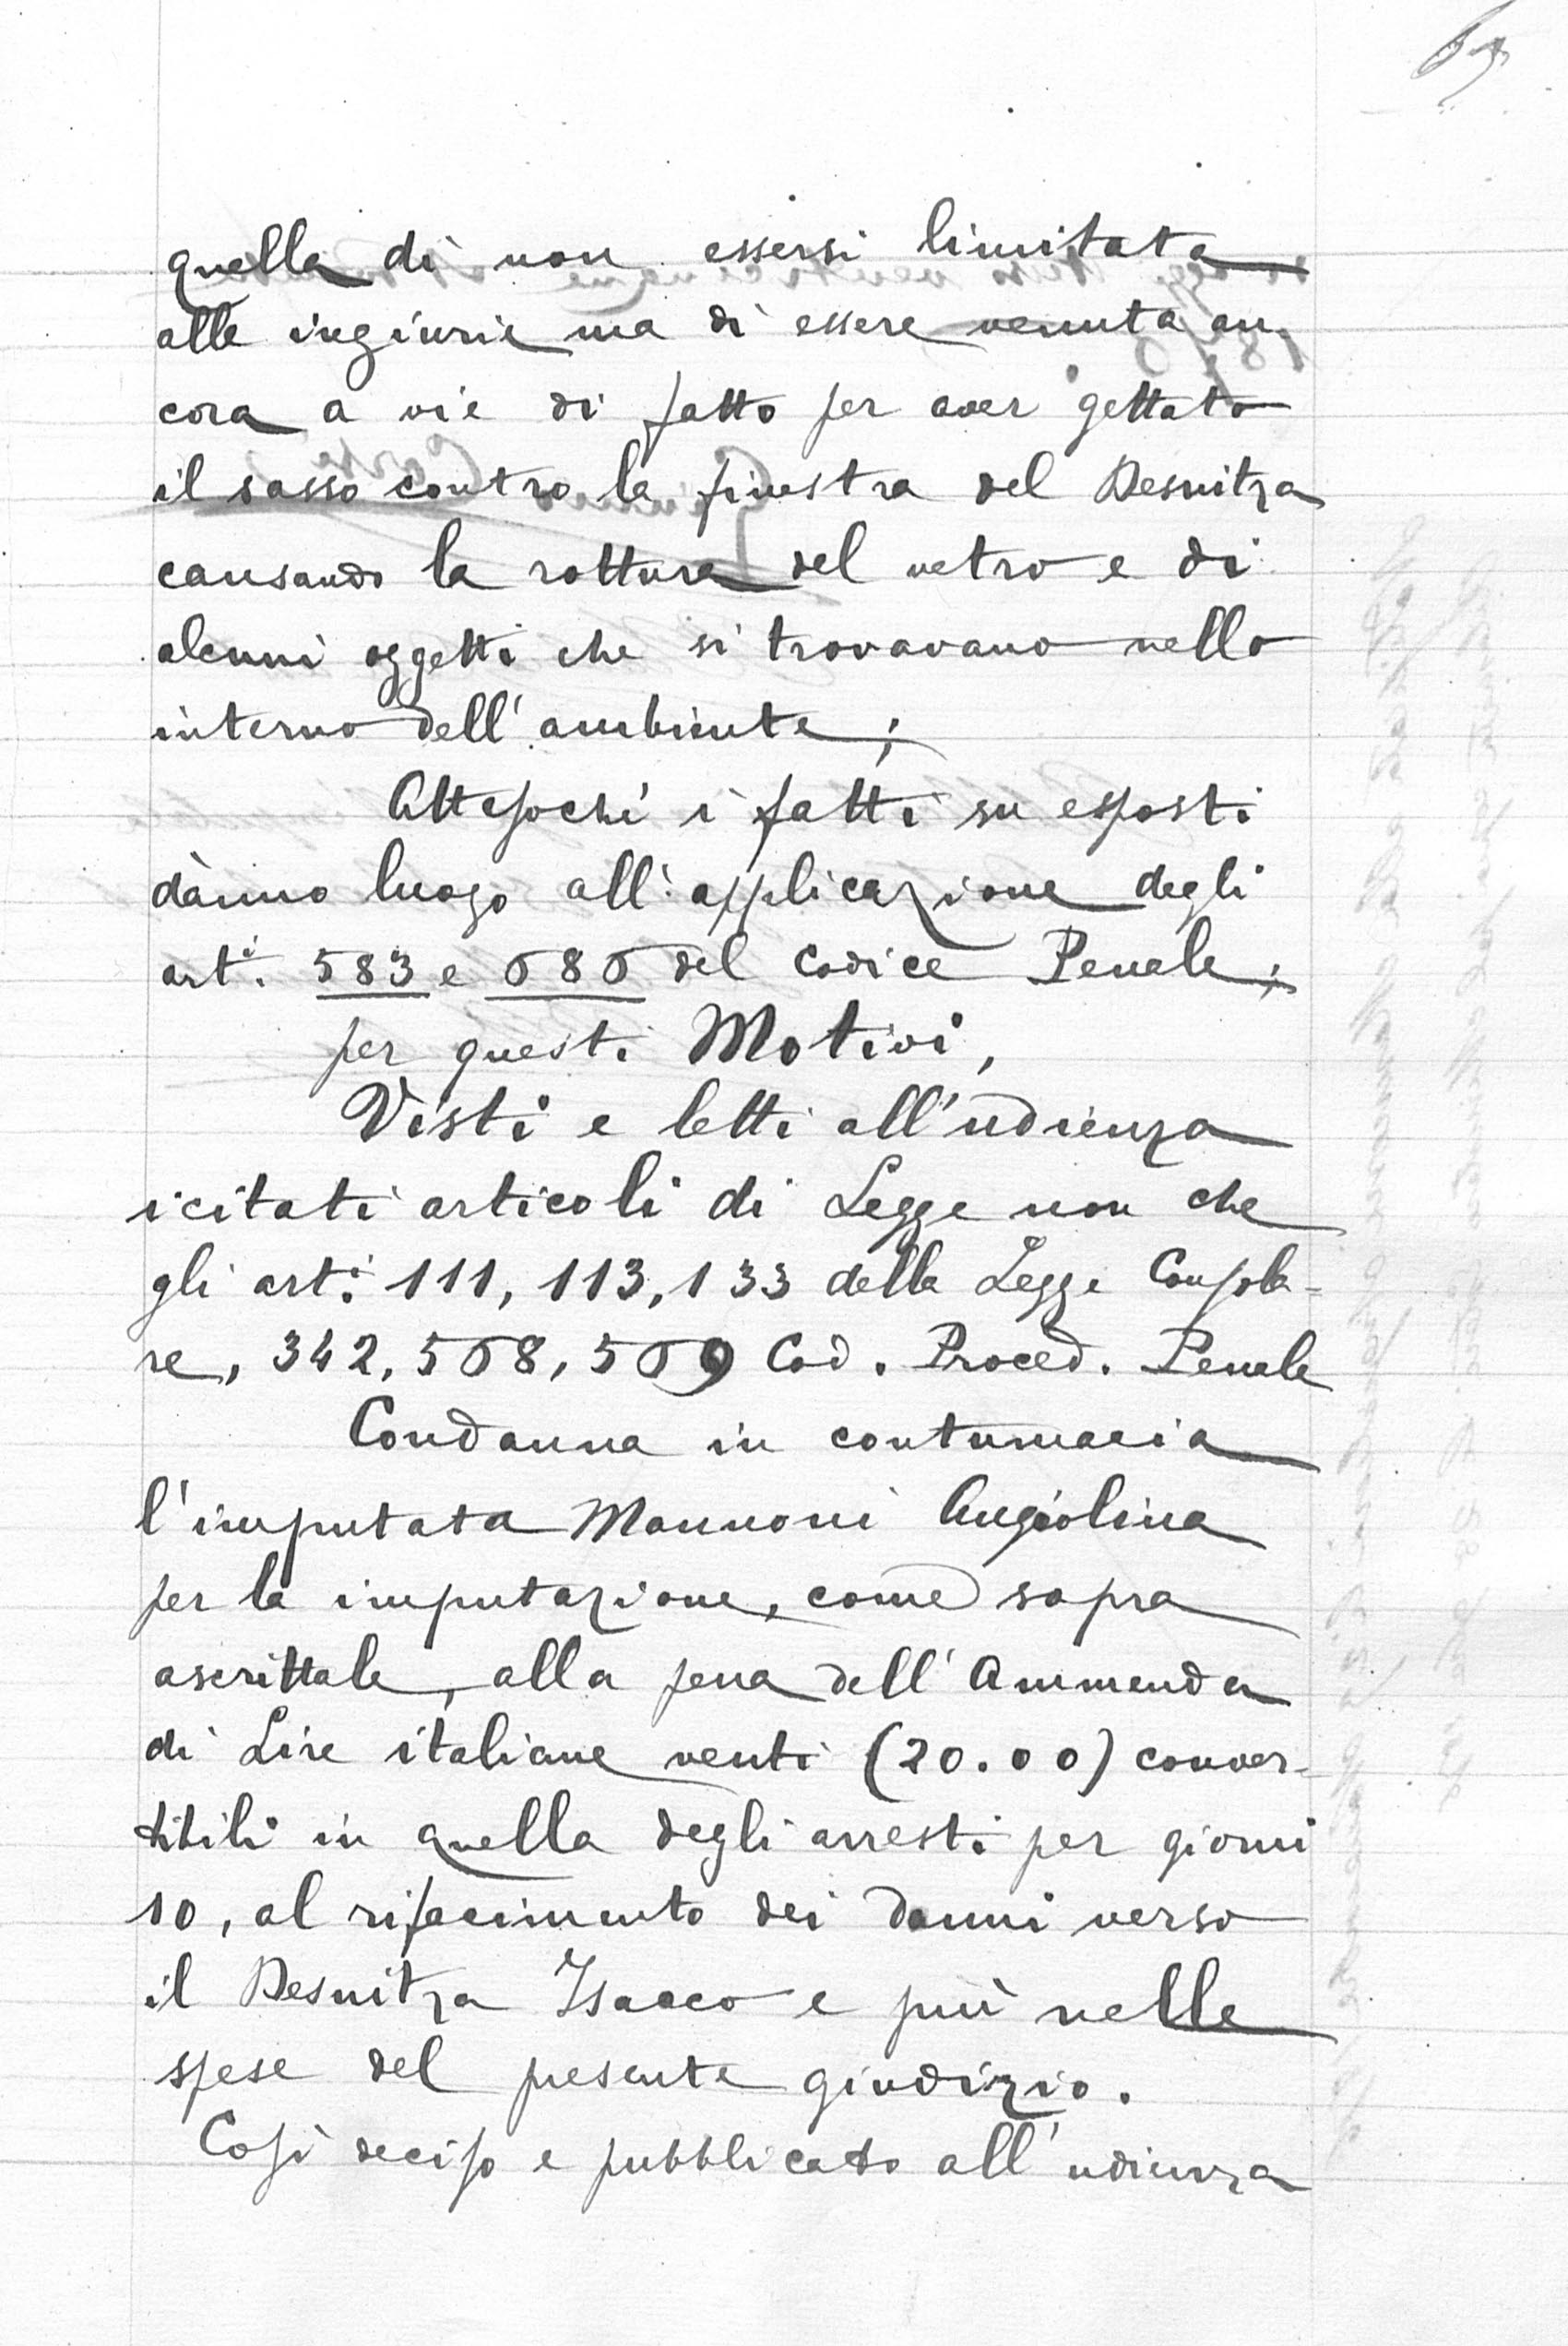 quella di non essersi limitata
alle ingiurie ma di essere venuta an-
cora a vie di fatto per aver gettato
il sasso contro la finestra del Desnitza
causando la rottura del vetro e di
alcuni oggetti che si trovavano nello
interno dell'ambiente;
Attesochè i fatti su esposti
dànno luogo all'applicazione degli
art.i 583 e 686 del Codice Penale;
per questi Motivi,
Visti e letti all'udienza
i citati articoli di Legge non che
gli art.i 111, 113, 133 della Legge Consola=
re, 342, 568, 569 Cod. Proced. Penale
Condanna in contumacia
l'imputata Mannoni Angiolina
per la imputazione, come sopra
ascrittale, alla pena dell'Ammenda
di Lire italiane venti (20.00) conver=
tibili in quella degli arresti per giorni
10, al rifacimento dei danni verso
il Desnitza Isacco e più nelle
spese del presente giudizio.
Così deciso e pubblicato all'udienza